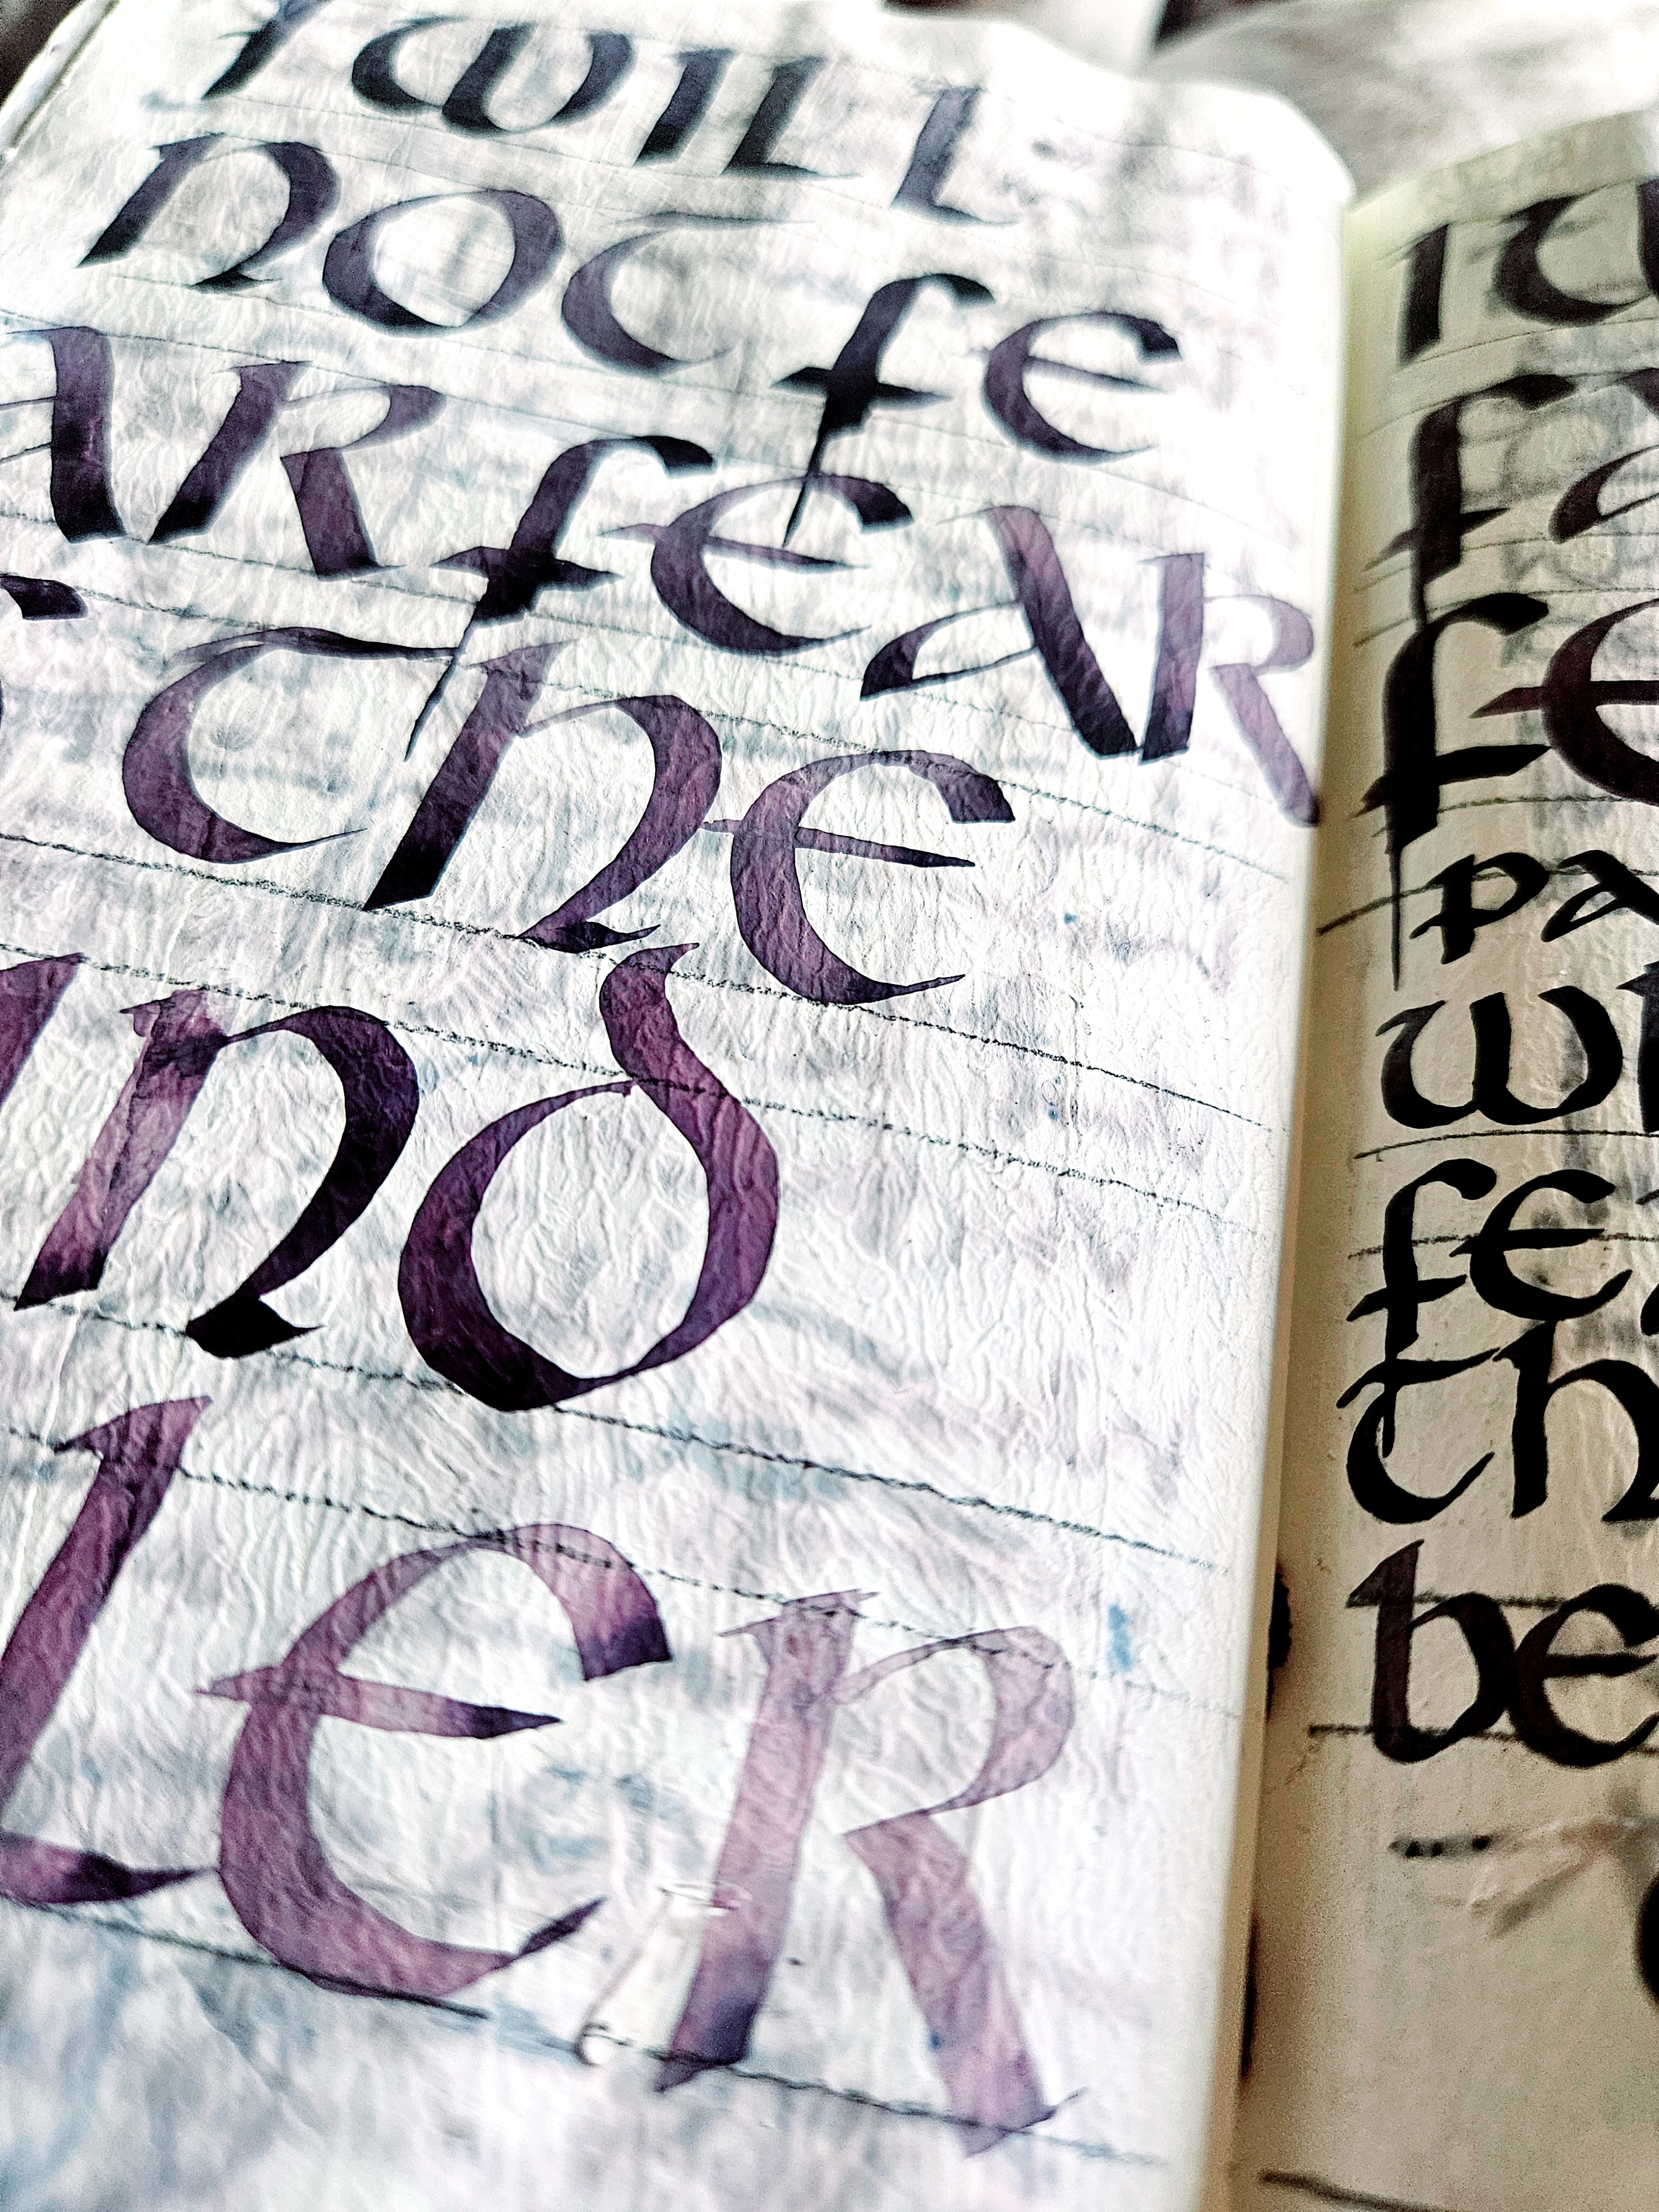 I WILL
NOT fe
AR feAR
THE
IND
LER
IW
f
fe
pa
wh
fea
th
be